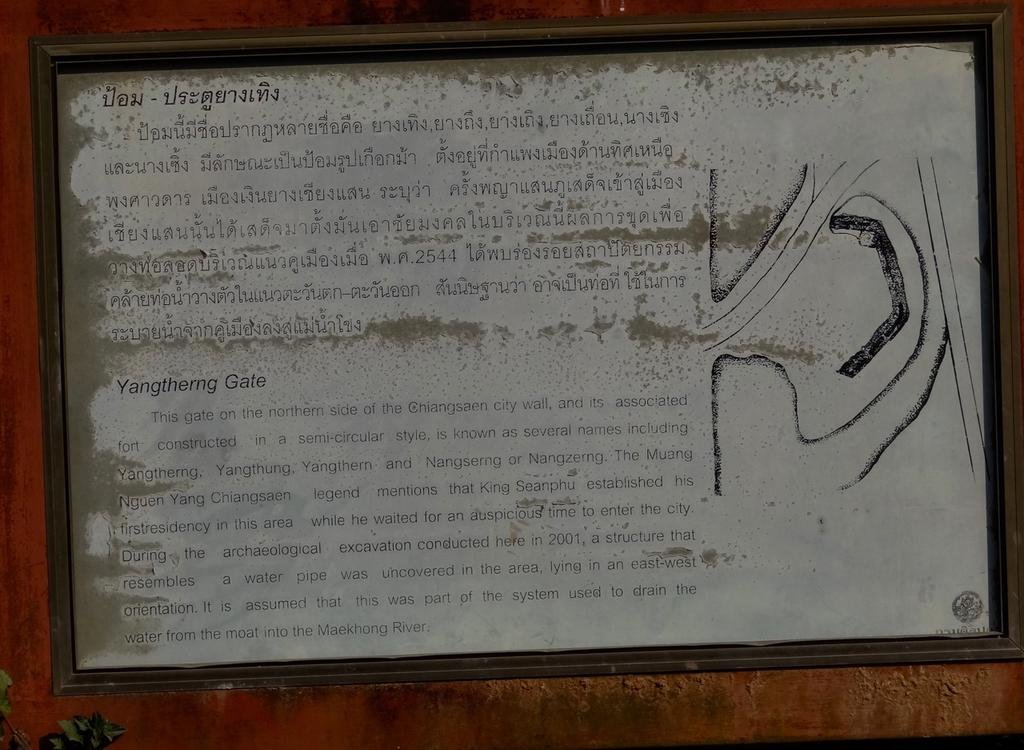 ป้อม - ประตูยางเทิง
ป้อมนี้มีชื่อปรากฏหลายชื่อคือ ยางเทิง,ยางถึง,ยางเถิง,ยางเถื่อน,นางเซิง
และนางเซิ้ง มีลักษณะเป็นป้อมรูปเกือกม้า ตั้งอยู่ที่กำแพงเมืองด้านทิศเหนือ
พงศาวดาร เมืองเงินยางเชียงแสน ระบุว่า ครั้งพญาแสนภูเสด็จเข้าสู่เมือง
เชียงแสนนั้นได้เสด็จมาตั้งมั่นเอาชัยมงคลในบริเวณนี้ผลการขุดเพื่อ
วางท่อลอดบริเวณแนวคูเมืองเมื่อ พ.ศ.2544 ได้พบร่องรอยสถาปัตยกรรม
คล้ายท่อน้ำวางตัวในแนวตะวันตก–ตะวันออก สันนิษฐานว่า อาจเป็นท่อที่ ใช้ในการ
ระบายน้ำจากคูเมืองลงสู่แม่น้ำโขง
Yangtherng Gate
This gate on the northern side of the Chiangsaen city wall, and its associated
fort constructed in a semi-circular style, is known as several names including
Yangtherng, Yangthung, Yangthern and Nangserng or Nangzerng. The Muang
Nguen Yang Chiangsaen legend mentions that King Seanphu established his
firstresidency in this area while he waited for an auspicious time to enter the city.
During the archaeological excavation conducted here in 2001, a structure that
resembles a water pipe was uncovered in the area, lying in an east-west
orientation. It is assumed that this was part of the system used to drain the
water from the moat into the Maekhong River.